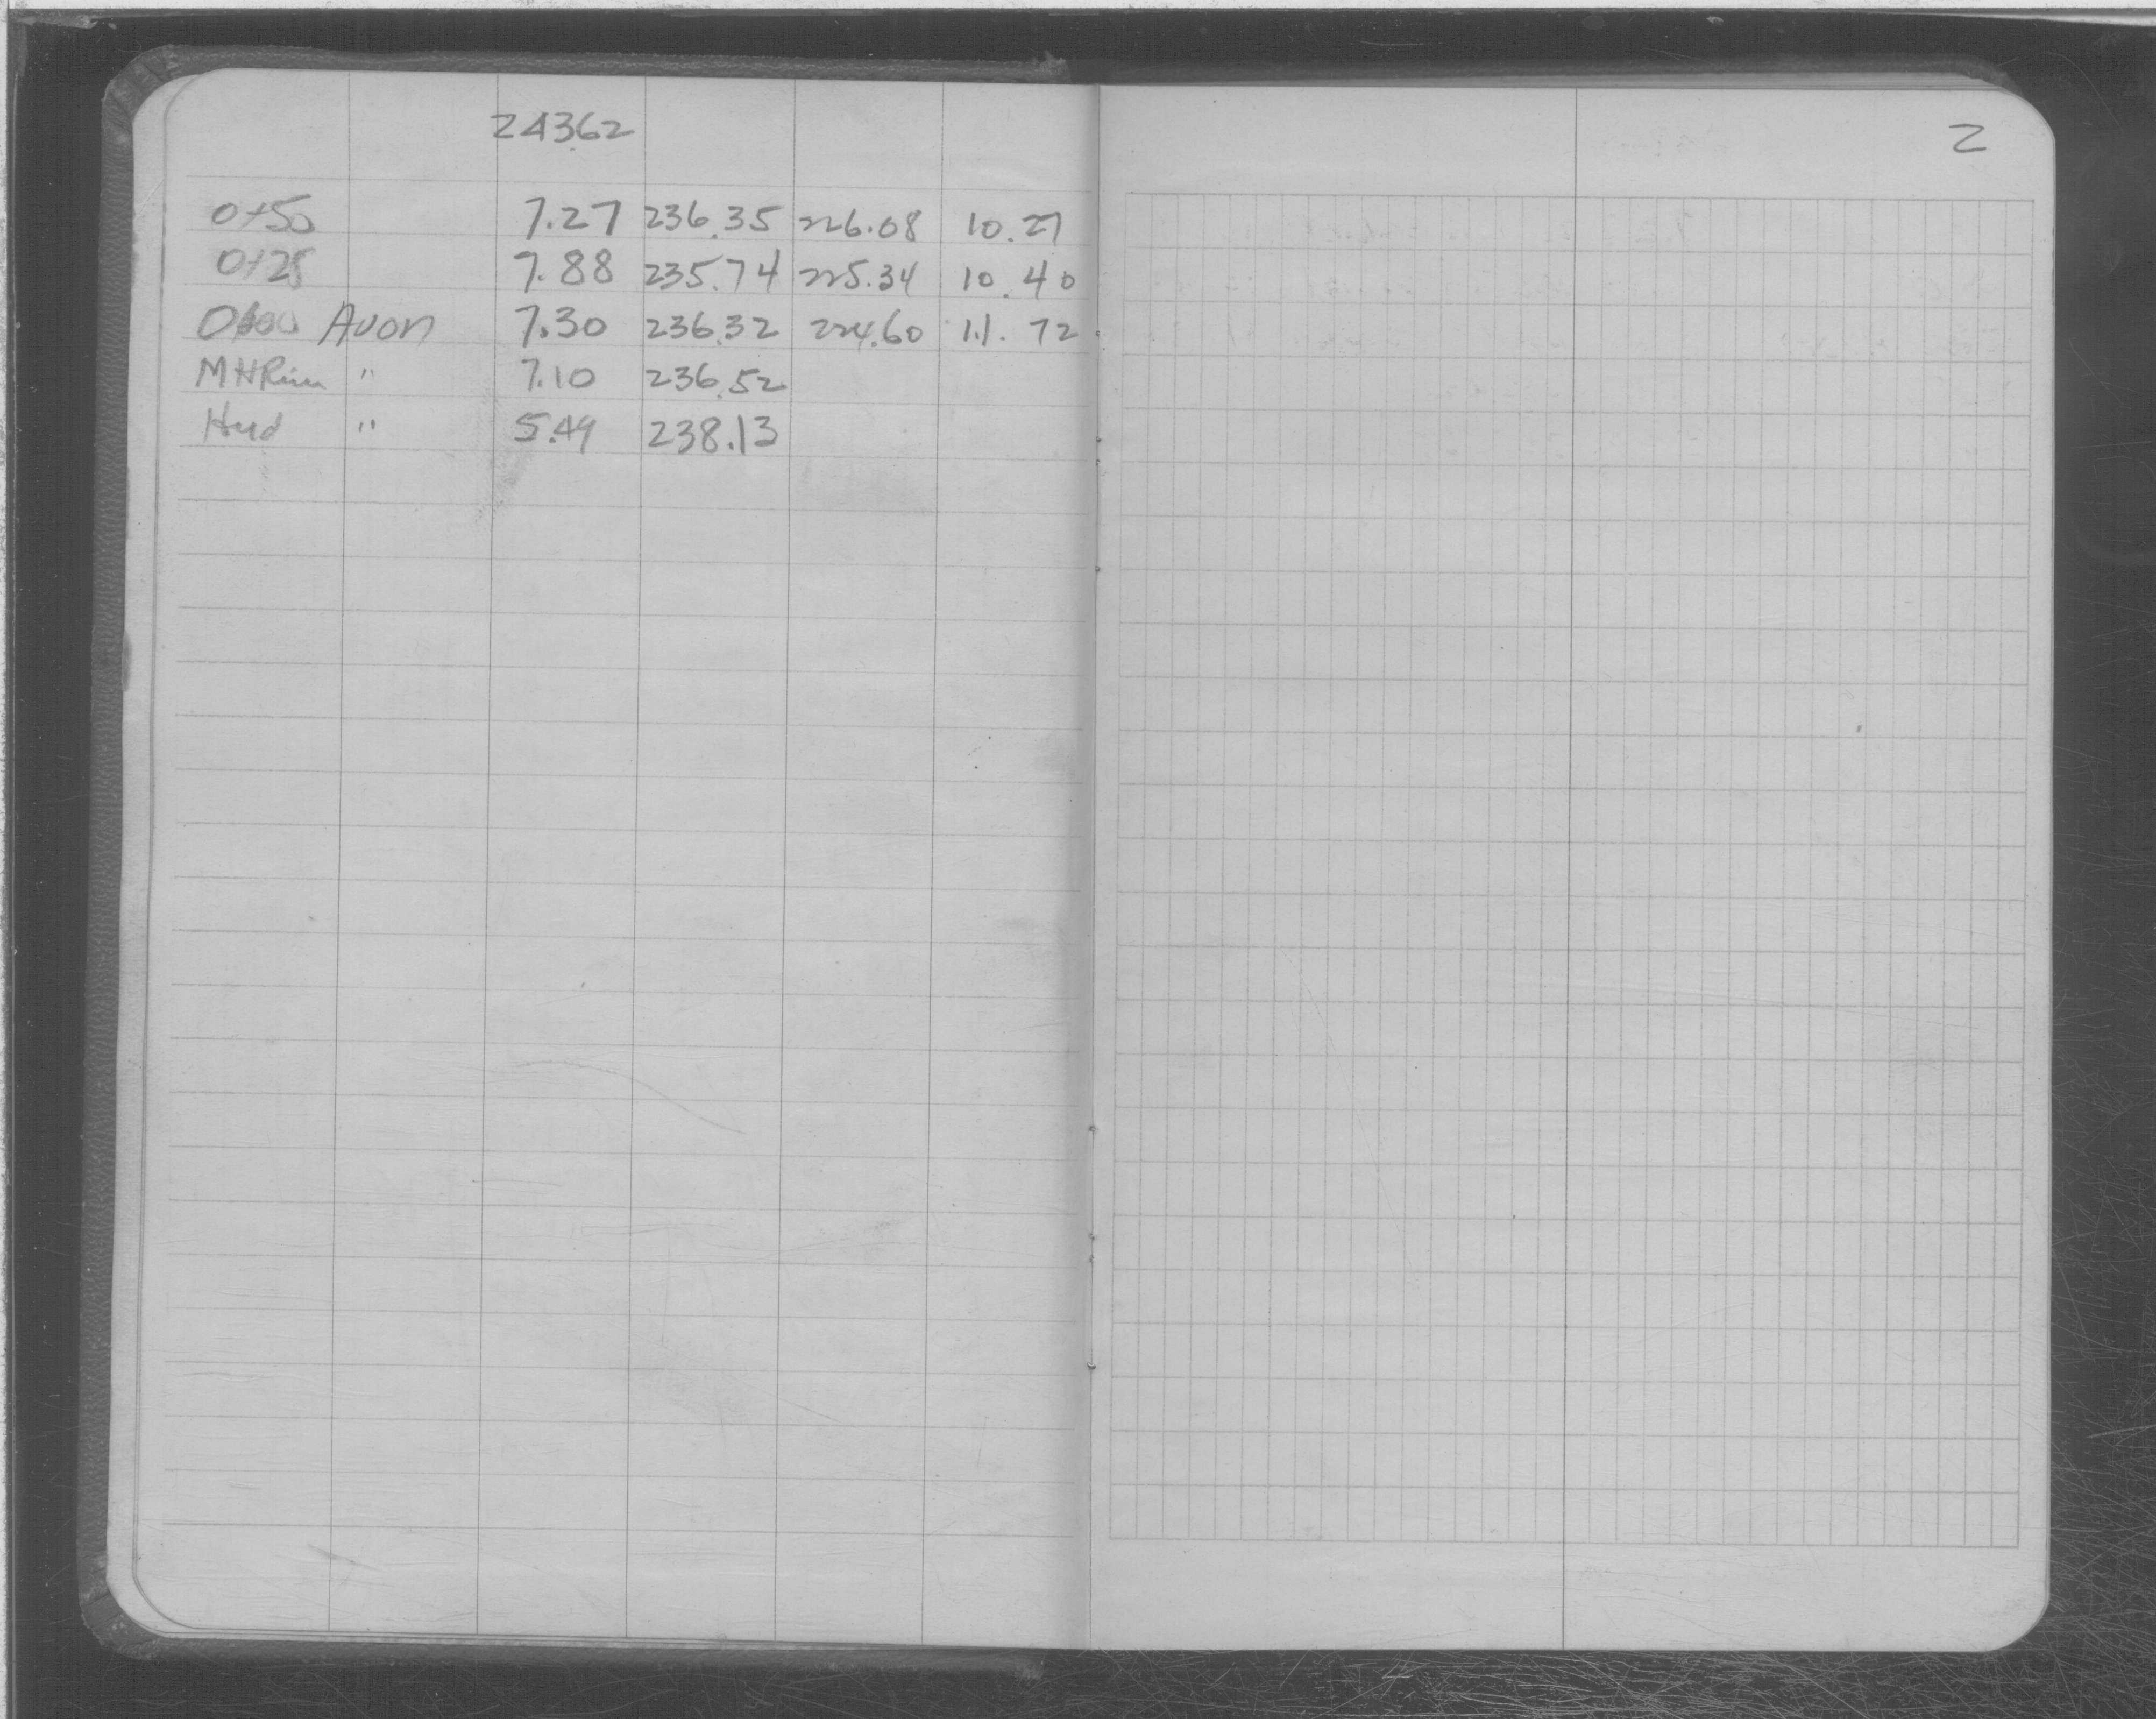 243.62
2
0+50 7.27 236.35 226.08 10.27
0+25 7.88 235.74 225.34 10.40
0+00 Avon 7.30 236.32 224.60 11.72
MH Rim " 7.10 236.52
Hyd " 5.49 238.13